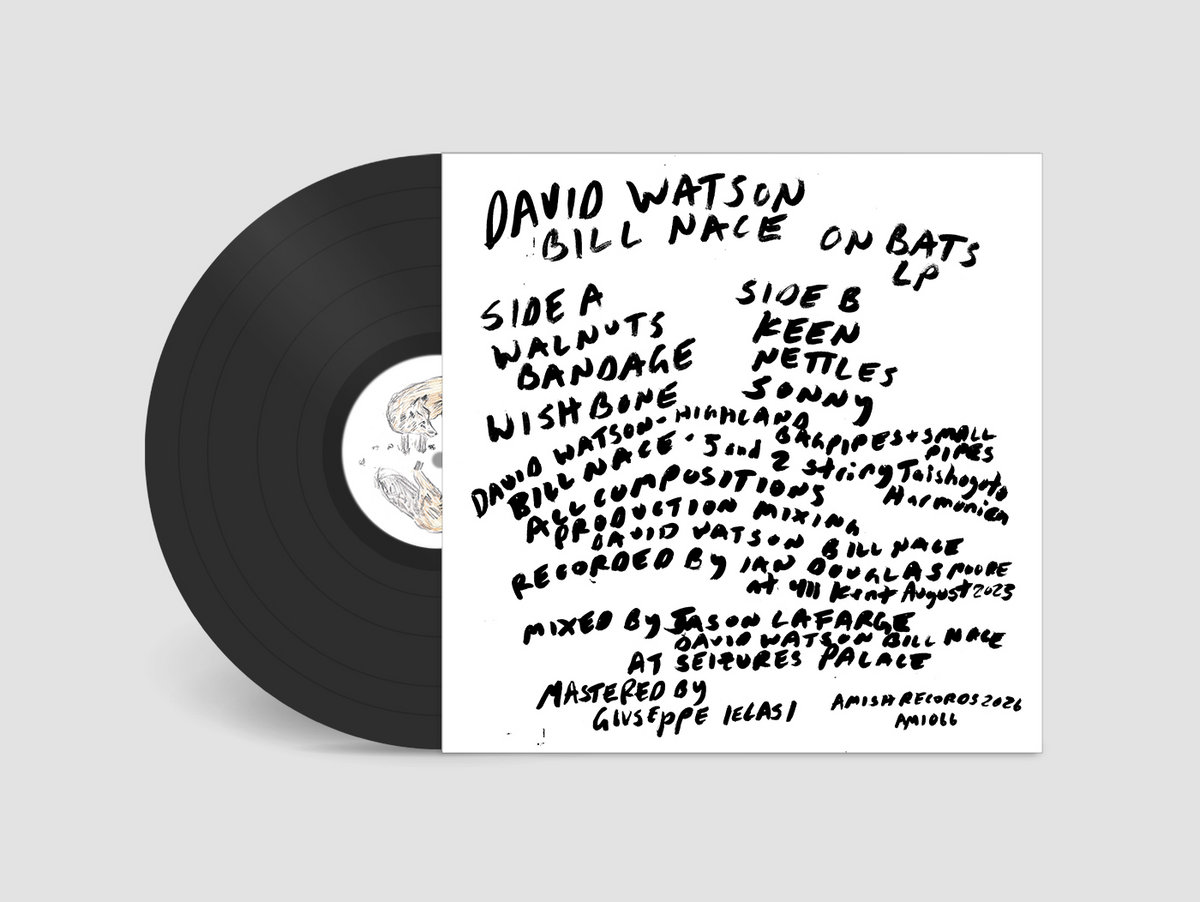 DAVID WATSON
BILL NACE
ON BATS
LP
SIDE A
WALNUTS
BANDAGE
WISHBONE
SIDE B
KEEN
NETTLES
SONNY
DAVID WATSON - HIGHLAND
BAGPIPES + SMALL
PIPES
BILL NACE - 5 and 2 string Taishogoto
Harmonica
ALL COMPOSITIONS
PRODUCTION MIXING
DAVID WATSON BILL NACE
RECORDED BY IAN DOUGLAS MOORE
at 411 Kent August 2023
MIXED BY JASON LAFARGE
DAVID WATSON BILL NACE
AT SEIZURES PALACE
MASTERED BY
GIUSEPPE IELASI
AMISH RECORDS 2026
AMI066